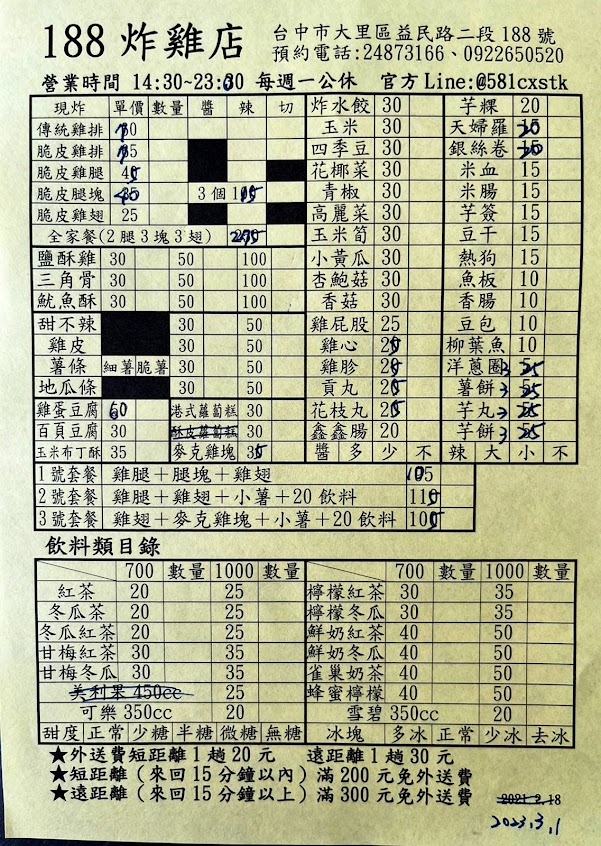 188 炸雞店
台中市大里區益民路二段 188 號
預約電話:24873166、0922650520
營業時間 14:30~23:00 每週一公休 官方 Line:@581cxstk
現炸 單價 數量 醬 辣 切 炸水餃 30 芋粿 20
傳統雞排 玉米 30 天婦羅
脆皮雞排 四季豆 30 銀絲卷
脆皮雞腿 花椰菜 30 米血 15
脆皮腿塊 3 個 青椒 30 米腸 15
脆皮雞翅 25 高麗菜 30 芋簽 15
全家餐(2 腿 3 塊 3 翅) 玉米筍 30 豆干 15
鹽酥雞 30 50 100 小黃瓜 30 熱狗 15
三角骨 30 50 100 杏鮑菇 30 魚板 10
魷魚酥 30 50 100 香菇 30 香腸 10
甜不辣 30 50 雞屁股 25 豆包 10
雞皮 30 50 雞心 柳葉魚 10
薯條 細薯脆薯 30 50 雞胗 洋蔥圈
地瓜條 30 50 貢丸 薯餅
雞蛋豆腐 60 港式蘿蔔糕 30 花枝丸 芋丸
百頁豆腐 30 酥皮蘿蔔糕 30 鑫鑫腸 20 芋餅
玉米布丁酥 35 麥克雞塊 醬 多 少 不 辣 大 小 不
1 號套餐 雞腿+腿塊+雞翅 105
2 號套餐 雞腿+雞翅+小薯+20 飲料
3 號套餐 雞翅+麥克雞塊+小薯+20 飲料
飲料類目錄
700 數量 1000 數量 700 數量 1000 數量
紅茶 20 25 檸檬紅茶 30 35
冬瓜茶 20 25 檸檬冬瓜 30 35
冬瓜紅茶 20 25 鮮奶紅茶 40 50
甘梅紅茶 30 35 鮮奶冬瓜 40 50
甘梅冬瓜 30 35 雀巢奶茶 40 50
美利果 450cc 25 蜂蜜檸檬 40 50
可樂 350cc 20 雪碧 350cc 20
甜度 正常 少糖 半糖 微糖 無糖 冰塊 多冰 正常 少冰 去冰
★外送費短距離 1 趟 20 元 遠距離 1 趟 30 元
★短距離 (來回 15 分鐘以內) 滿 200 元免外送費
★遠距離 (來回 15 分鐘以上) 滿 300 元免外送費
2021 2.18
2023.3.1